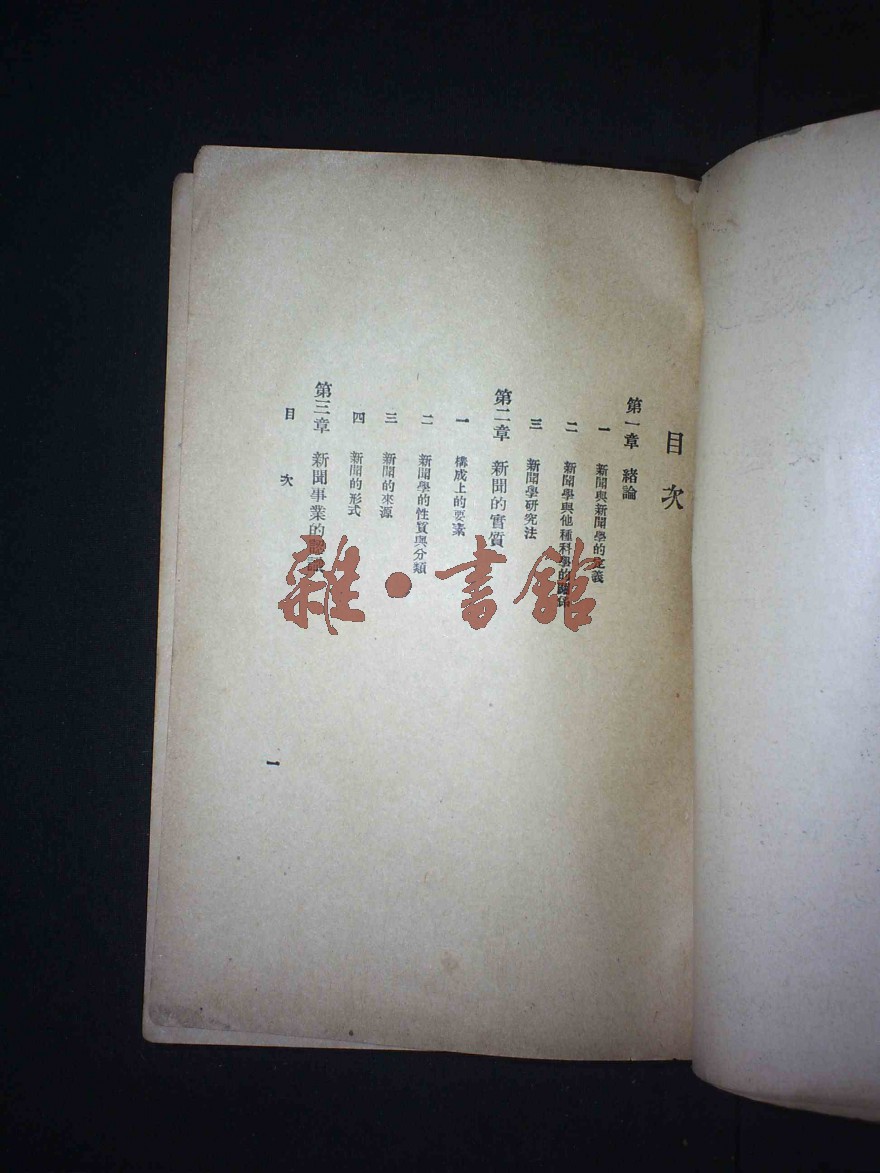 目次
第一章 緒論
一 新聞與新聞學的定義
二 新聞學與他種科學的關係
三 新聞學研究法
第二章 新聞的實質
一 構成上的要素
二 新聞學的性質與分類
三 新聞的來源
四 新聞的形式
第三章 新聞事業的
目次
一
雜·書館